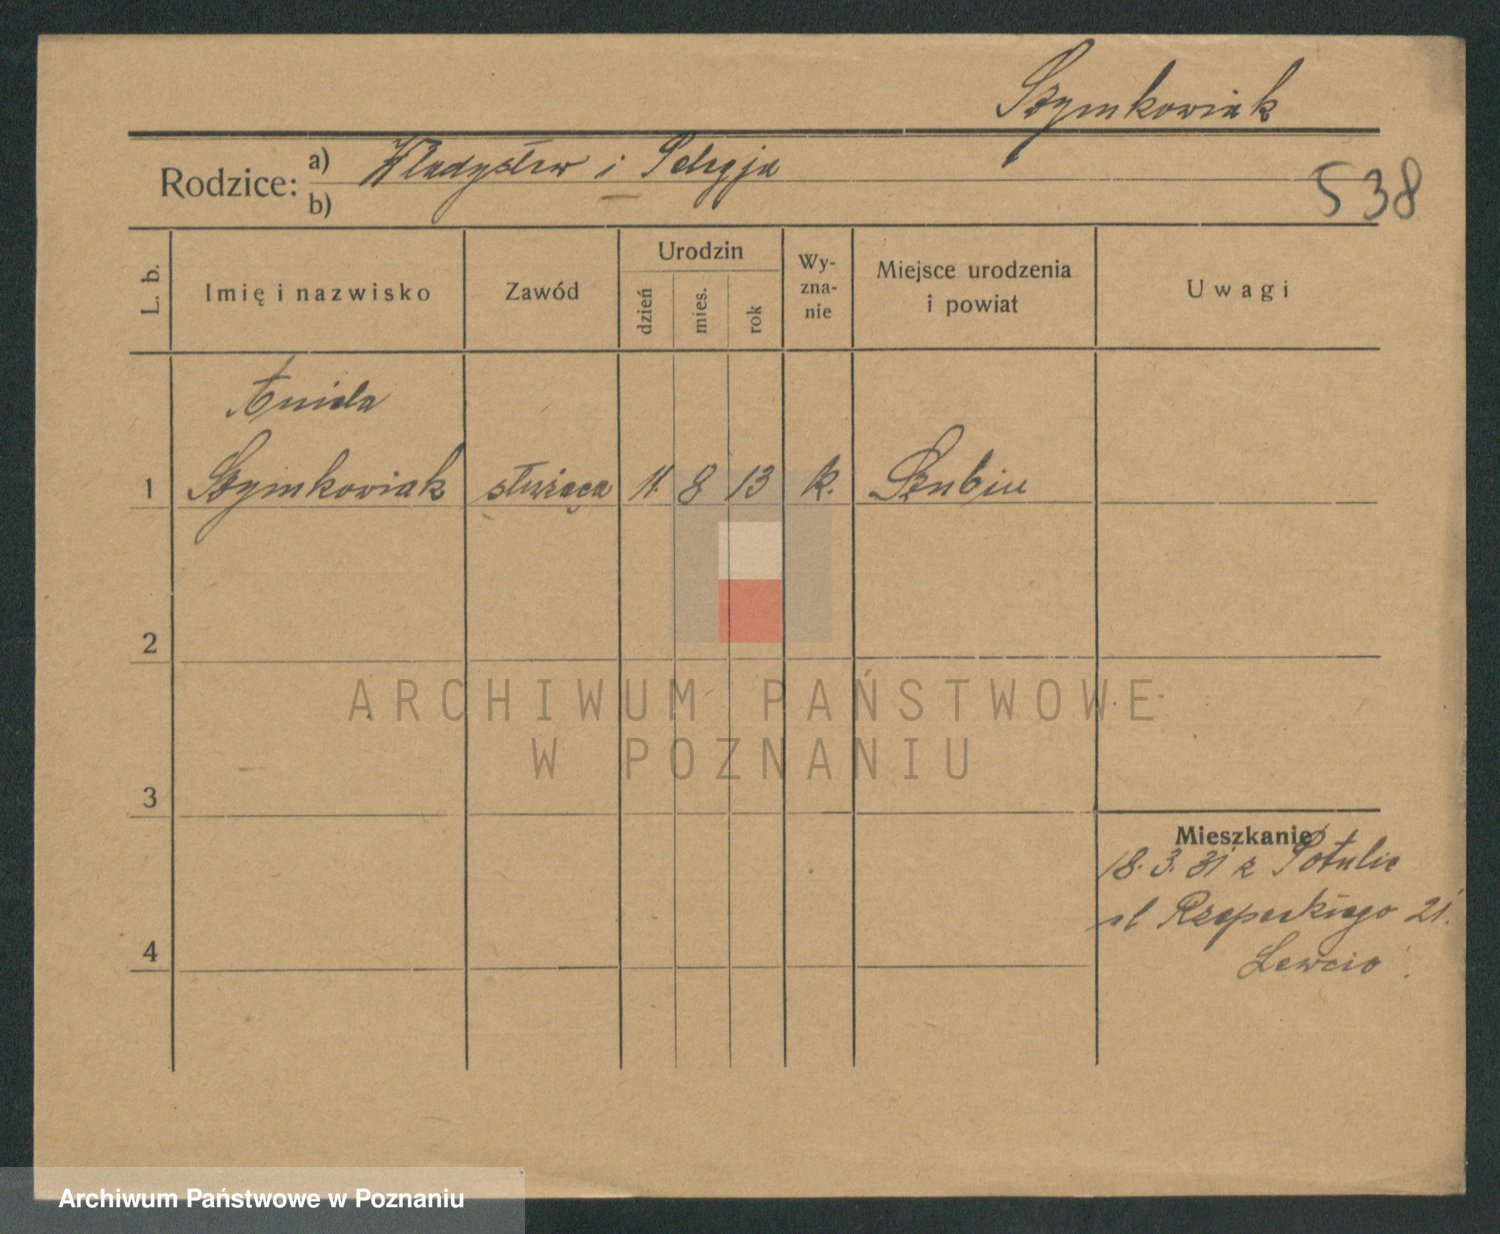 Szymkowiak
Rodzice: a) Władysław i Pelagja
b)
538
L. b.
Imię i nazwisko
Zawód
Urodzin
dzień
mies.
rok
Wy-
zna-
nie
Miejsce urodzenia
i powiat
Uwagi
Aniela
1 Szymkowiak służąca 11. 8 13 k. Szubin
2
ARCHIWUM PAŃSTWOWE
W POZNANIU
3
Mieszkanie
18.3.31 z Potulic
ul Rzepeckiego 21.
4
Archiwum Państwowe w Poznaniu